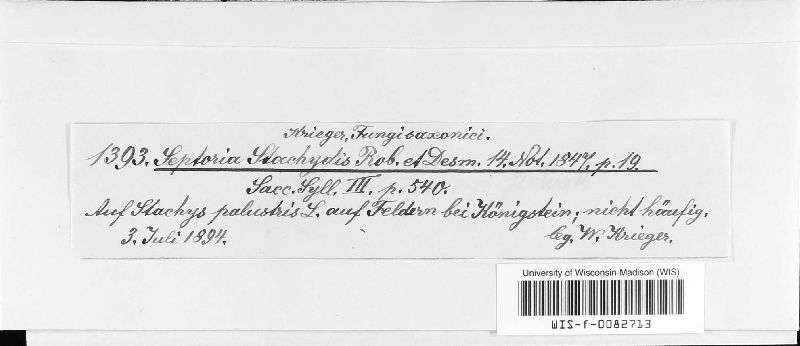 Krieger, Fungi saxonici.
1393. Septoria Stachydis Rob. et Desm. 14. Not. 1847, p. 19.
Sacc. Syll. III. p. 540.
Auf Stachys palustris L. auf Feldern bei Königstein; nicht häufig.
3. Juli 1894. leg. W. Krieger.
University of Wisconsin-Madison (WIS)
WIS-f-0082713